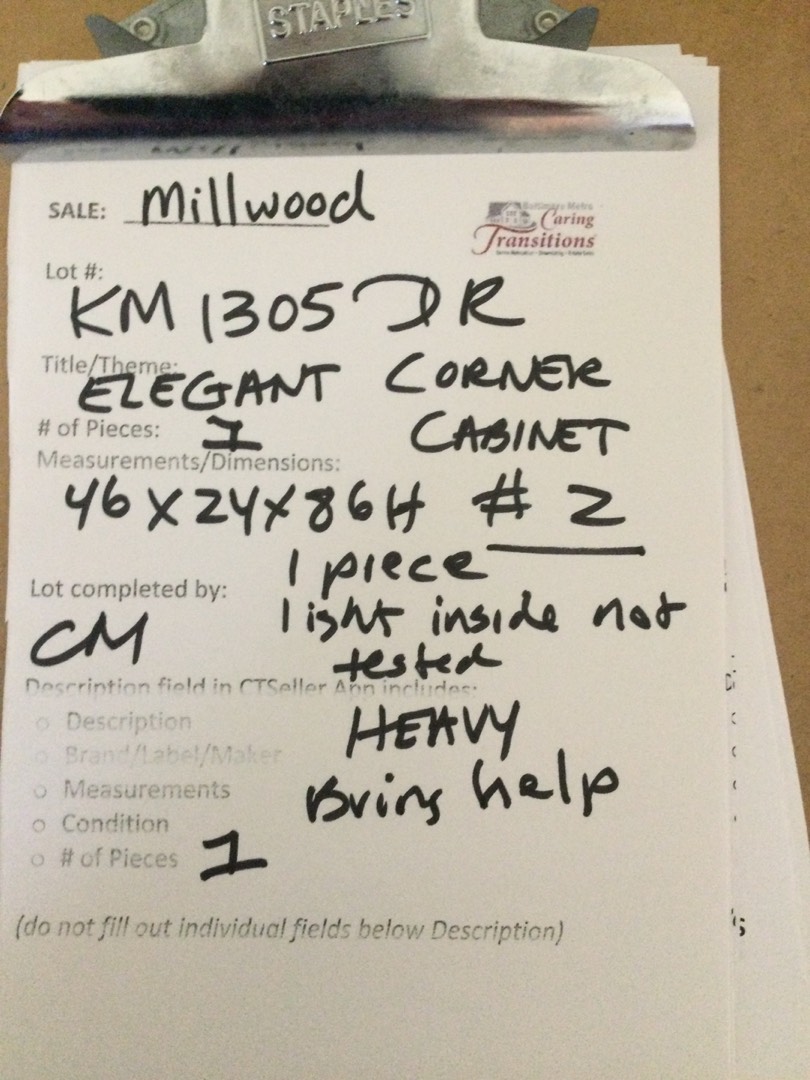 STAPLES
SALE: Millwood
Baltimore Metro
Caring
Transitions
Lot #:
KM 1305 DR
Title/Theme:
ELEGANT CORNER
# of Pieces: 1 CABINET
Measurements/Dimensions:
46 X 24 X 86H # 2
1 piece
Lot completed by:
light inside not
CM
tested
Description field in CTSeller App includes:
○ Description
HEAVY
○ Brand/Label/Maker
○ Measurements
Bring help
○ Condition
○ # of Pieces 1
(do not fill out individual fields below Description)